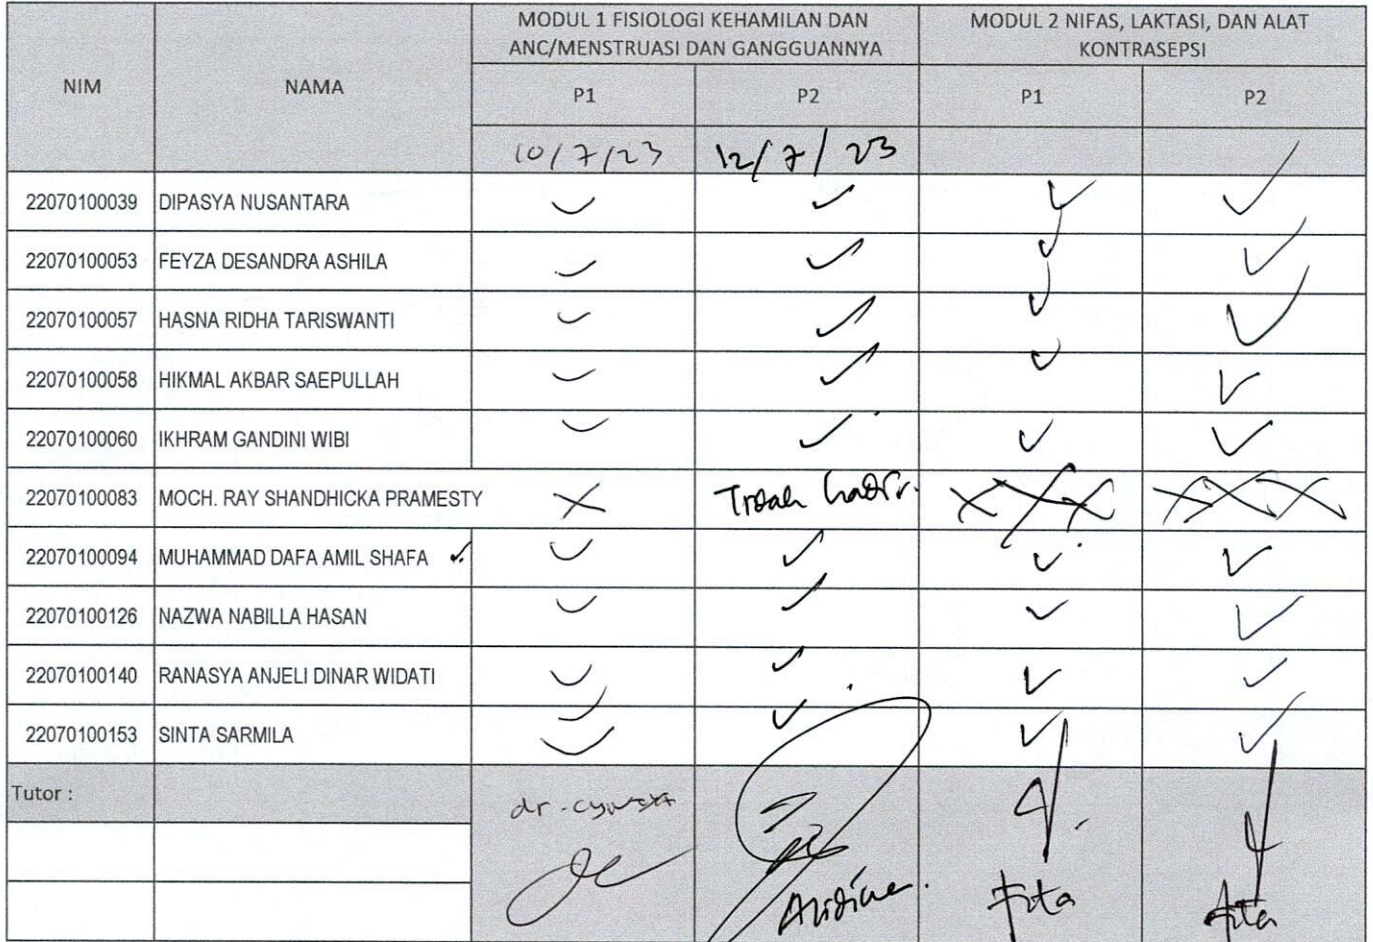 NIM NAMA MODUL 1 FISIOLOGI KEHAMILAN DAN ANC/MENSTRUASI DAN GANGGUANNYA MODUL 2 NIFAS, LAKTASI, DAN ALAT KONTRASEPSI
P1 P2 P1 P2
10/7/23 12/7/23 ✓
22070100039 DIPASYA NUSANTARA ✓ ✓ ✓ ✓
22070100053 FEYZA DESANDRA ASHILA ✓ ✓ ✓ ✓
22070100057 HASNA RIDHA TARISWANTI ✓ ✓ ✓ ✓
22070100058 HIKMAL AKBAR SAEPULLAH ✓ ✓ ✓ ✓
22070100060 IKHRAM GANDINI WIBI ✓ ✓ ✓ ✓
22070100083 MOCH. RAY SHANDHICKA PRAMESTY X Tidak hadir. XXX XXX
22070100094 MUHAMMAD DAFA AMIL SHAFA ✓ ✓ ✓ ✓ ✓
22070100126 NAZWA NABILLA HASAN ✓ ✓ ✓ ✓
22070100140 RANASYA ANJELI DINAR WIDATI ✓ ✓ ✓ ✓
22070100153 SINTA SARMILA ✓ ✓ ✓ ✓
Tutor : dr.